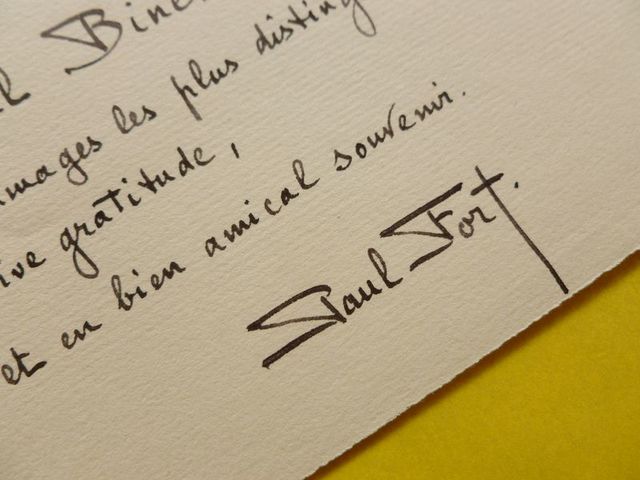 l Bine
mmages les plus disting
ive gratitude,
et en bien amical souvenir.
Paul Fort.